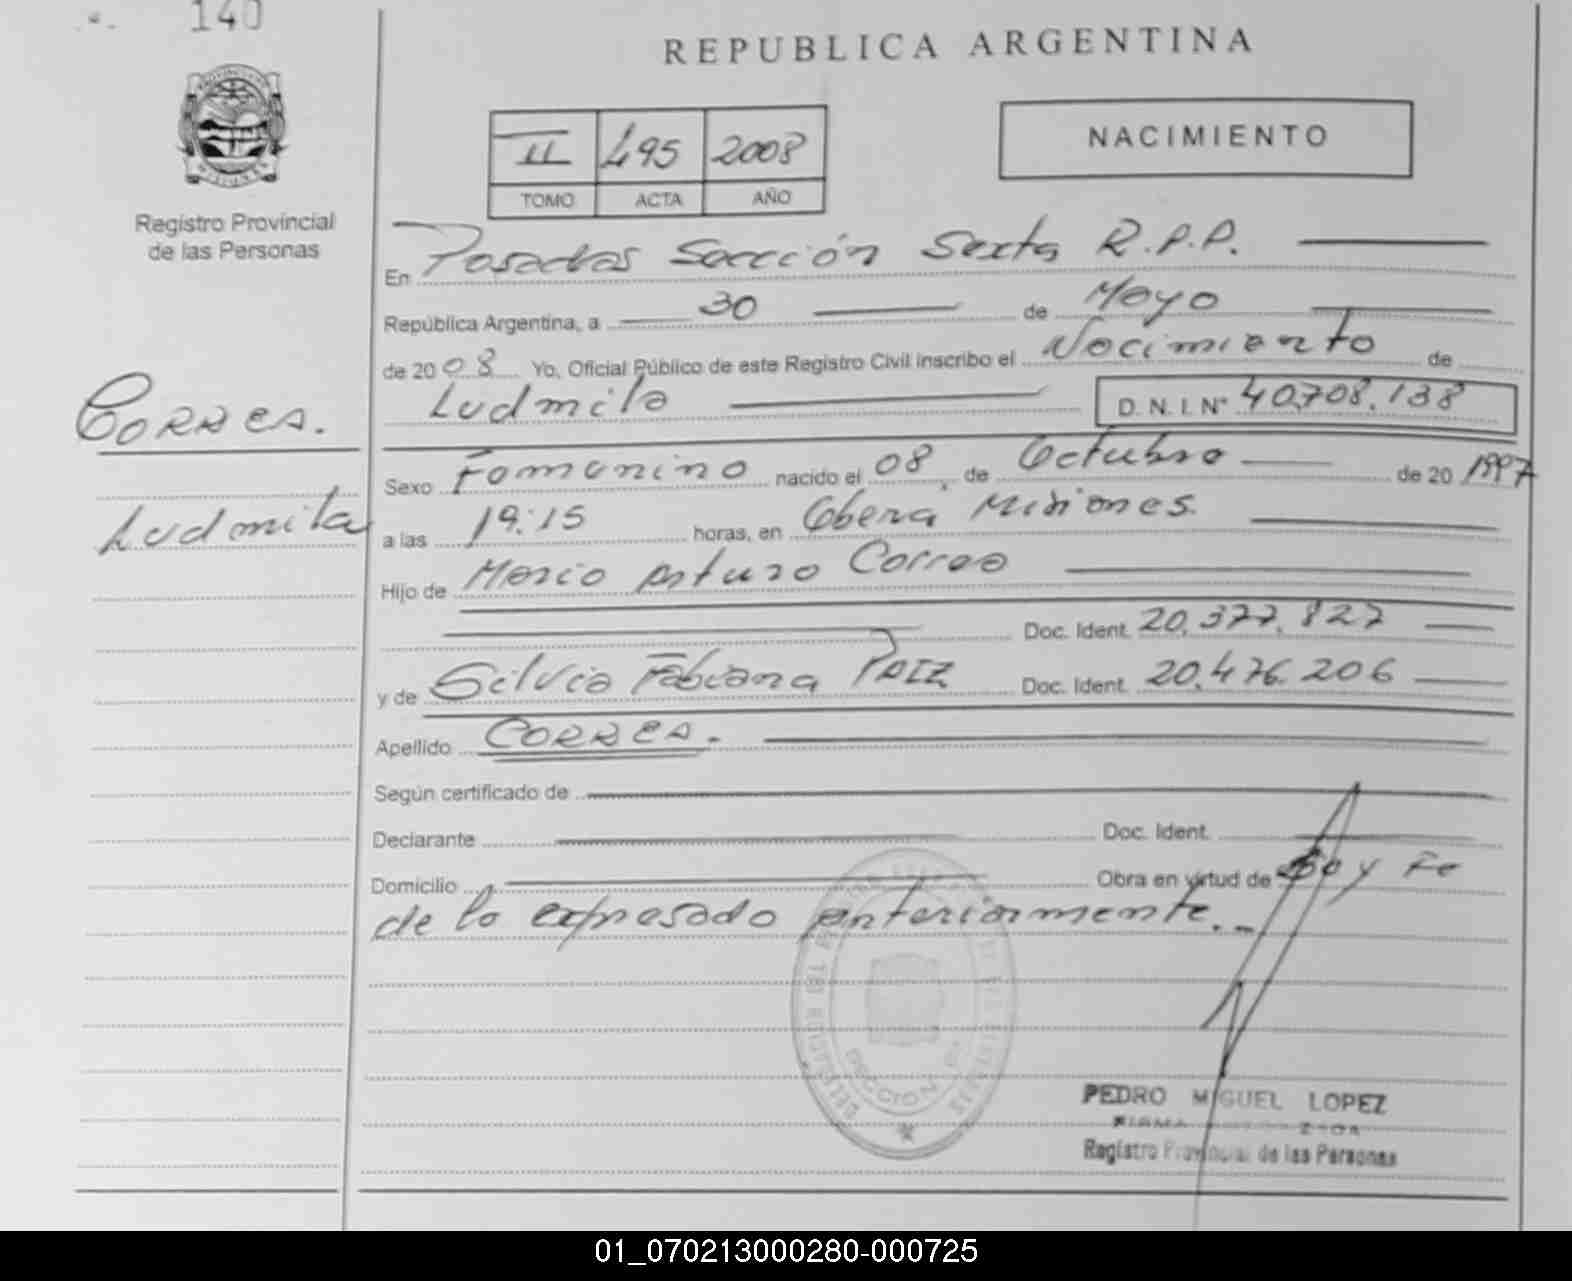 140
REPUBLICA ARGENTINA
II 495 2008
TOMO ACTA AÑO
NACIMIENTO
Registro Provincial
de las Personas
En Posadas Sección Sexta R.P.P.
República Argentina, a 30 de Mayo
de 2008 Yo, Oficial Público de este Registro Civil inscribo el Nacimiento de
Ludmila D.N.I. Nº 40.708.138
CORREA.
Ludmila
Sexo Femenino nacido el 08, de Octubre de 20 1997
a las 19:15 horas, en Oberá Misiones.
Hijo de Mario Arturo Correa
Doc. Ident. 20.377.827
y de Silvia Fabiana PAIZ Doc. Ident. 20.476.206
Apellido CORREA.
Según certificado de
Declarante Doc. Ident.
Domicilio Obra en virtud de Doy Fe
de lo expresado anteriormente.-
SECCION
PEDRO MIGUEL LOPEZ
FIRMA
Registro Provincial de las Personas
01_070213000280-000725